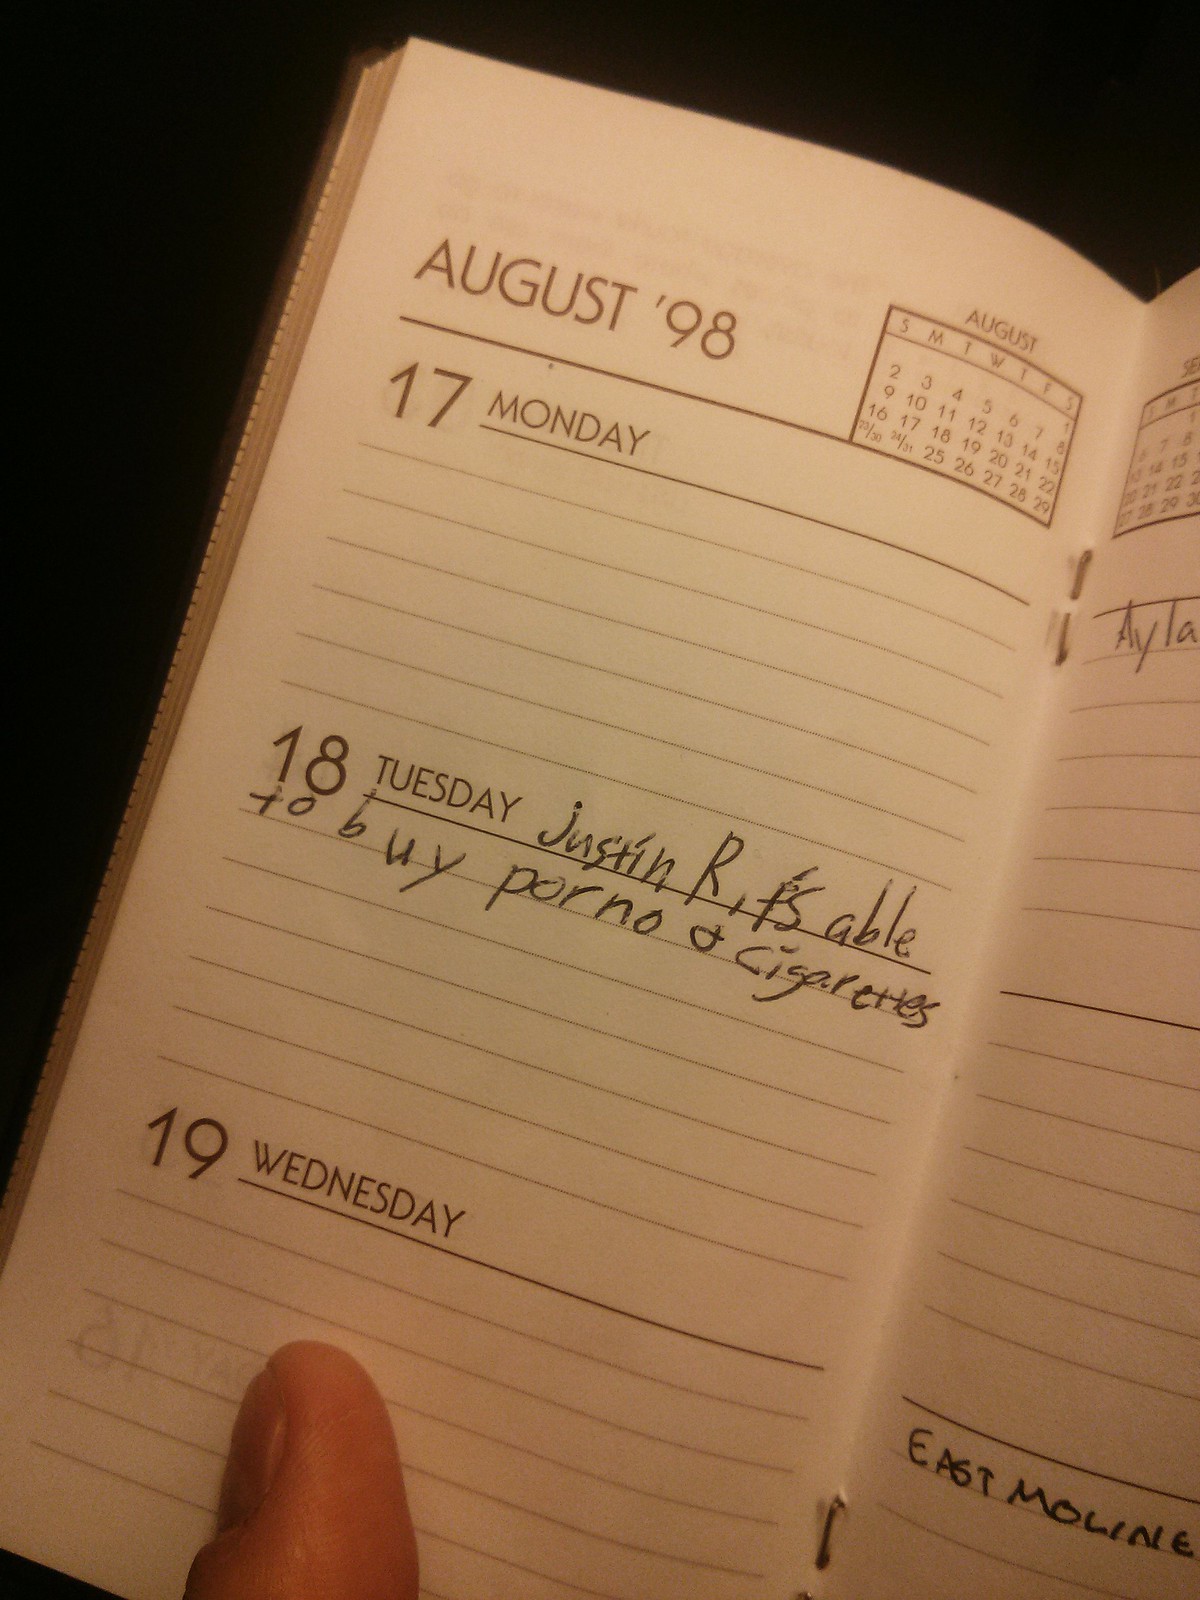 AUGUST '98
AUGUST
S M T W T F S
1
2 3 4 5 6 7 8
9 10 11 12 13 14 15
16 17 18 19 20 21 22
23/30 24/31 25 26 27 28 29
17 MONDAY
18 TUESDAY Justin R. is able
to buy porno & cigarettes
19 WEDNESDAY
SE
S M T
1
6 7 8
13 14 15
20 21 22
27 28 29 30
Ayla
EAST MOLINE